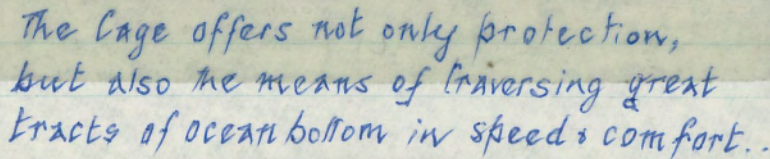 The Cage offers not only protection,
but also the means of traversing great
tracts of ocean bottom in speed & comfort..